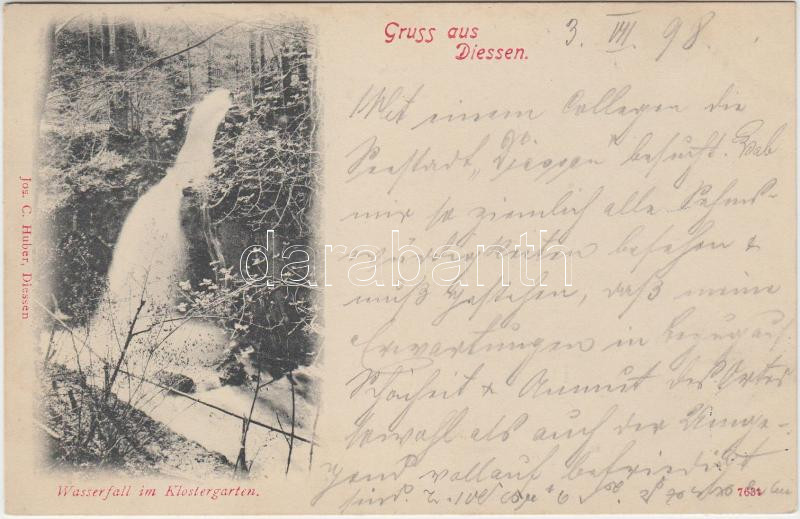 Gruss aus
Diessen.
3. VII. 98.
Mit einem Collegen die
Seestadt „Diessen" besucht. Hab
mir so ziemlich alle Sehens-
würdigkeiten besehen &
muß gestehen, daß meine
Erwartungen in Bezug auf
Schönheit & Anmut des Ortes
sowohl als auch der Umge-
gend vollauf befriedigt
sind.
Jos. C. Huber, Diessen
Wasserfall im Klostergarten.
7631
darabanth